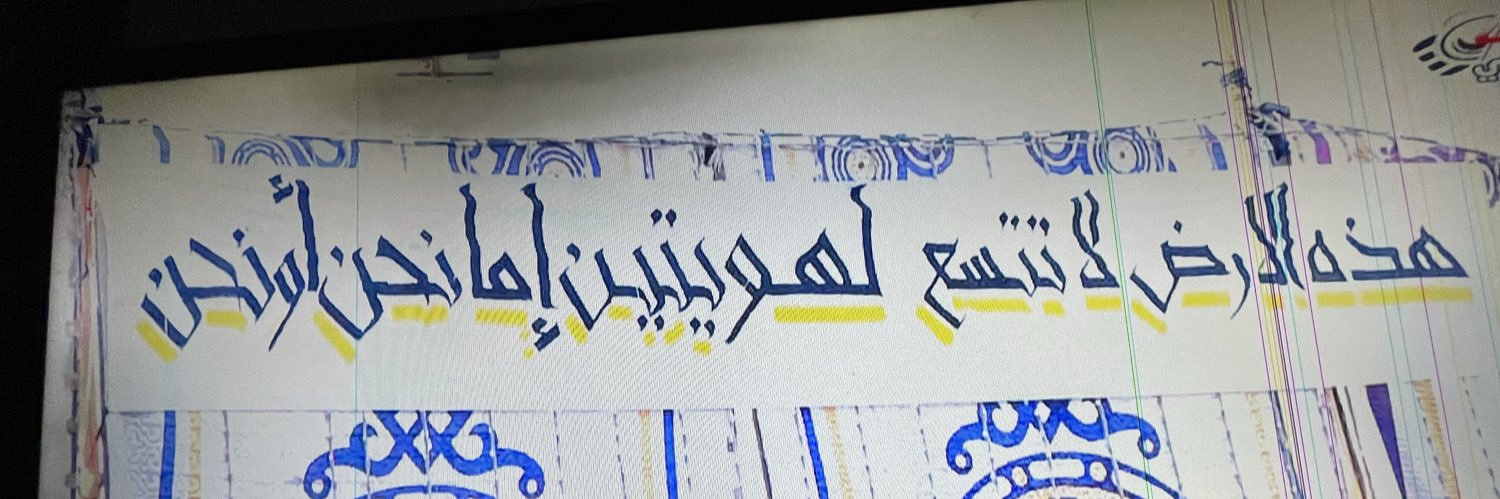 هذه الارض لا تتسع لهويتين إما نحن أو نحن